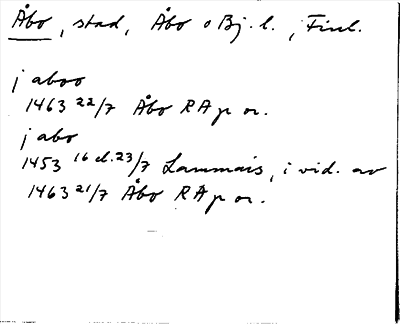 Åbo, stad, Åbo o Bj. l., Finl.
j aboo
1463 22/7 Åbo RAp or.
j abo
1453 16 el. 23/7 Lammais, i vid. av
1463 21/7 Åbo RAp or.